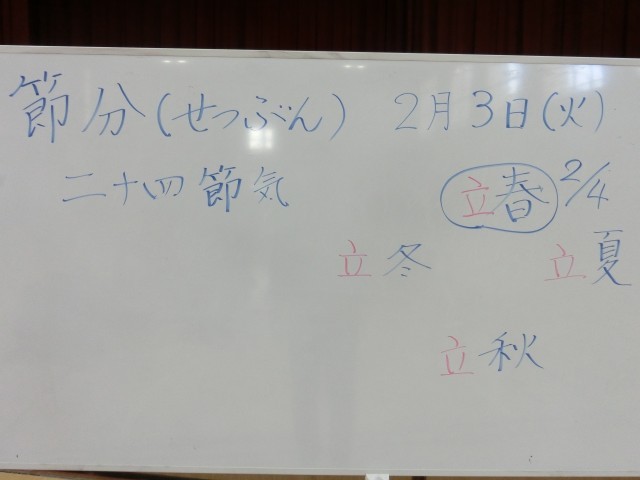 節分(せつぶん) 2月3日(火)
二十四節気 立春 2/4
立冬 立夏
立秋